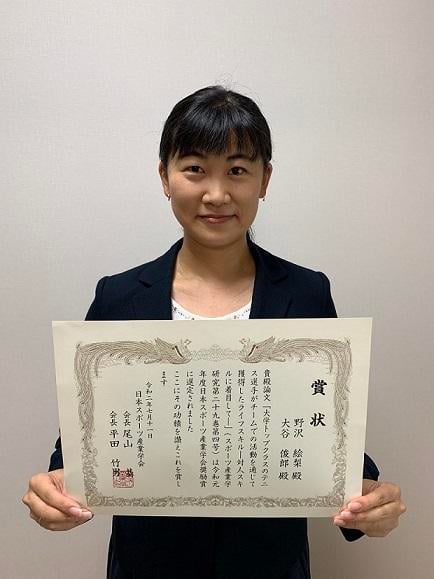 賞状
野沢 絵梨 殿
大谷 俊郎 殿
貴殿論文「大学トップクラスのテニ
ス選手がチームでの活動を通じて
獲得したライフスキル―対人スキ
ルに着目して―」（スポーツ産業学
研究第二十九巻第四号）は令和元
年度日本スポーツ産業学会奨励賞
に選定されました
ここにその功績を讃えこれを賞し
ます
令和二年七月十一日
日本スポーツ産業学会
会長 尾山 基
会長 平田 竹男